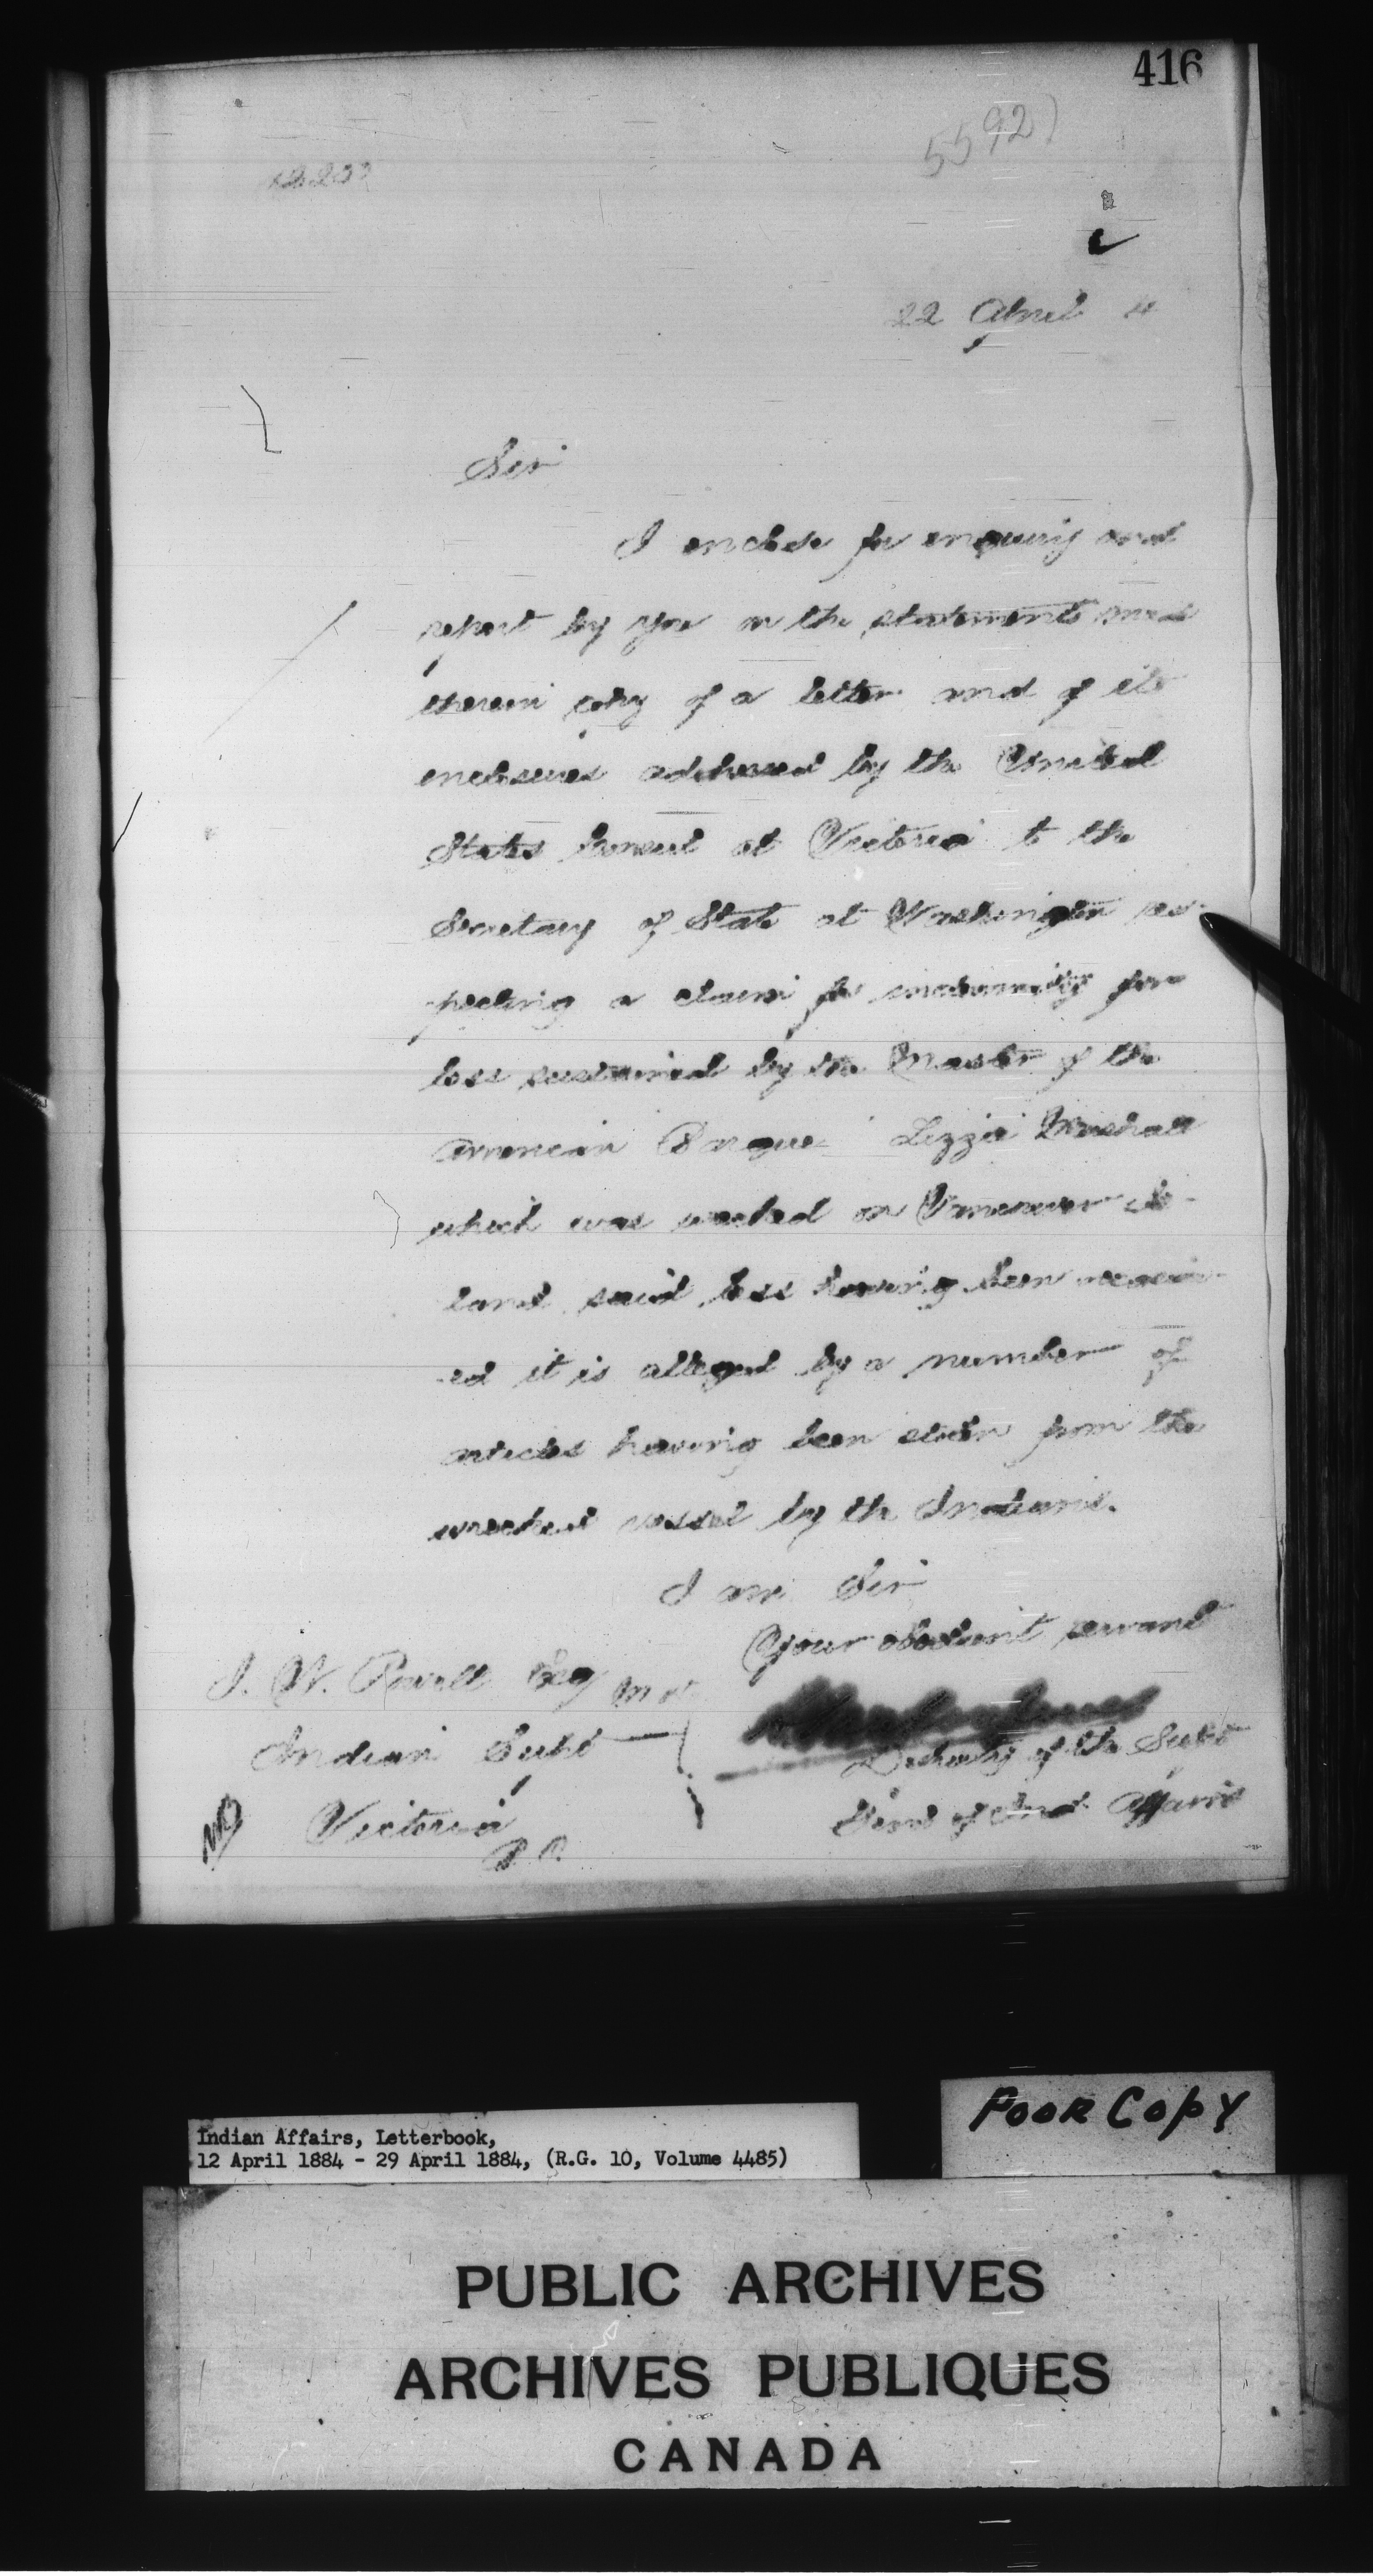 416
5592)
22 April 4
Sir
I enclose for enquiry and
report by you on the statements made
therein copy of a letter and of its
enclosures addressed by the United
States Consul at Victoria to the
Secretary of State at Washington res-
pecting a claim for indemnity for
loss sustained by the Master of the
American Barque Lizzie Marshall
which was wrecked on Vancouver Is-
land said loss having been occasion-
ed it is alleged by a number of
articles having been stolen from the
wrecked vessel by the Indians.
I am Sir
Your obedient servant
I. W. Powell Esq M D
Indian Supt
Deputy of the Supt
Genl of Ind. Affairs
Victoria
B.C.
Indian Affairs, Letterbook,
12 April 1884 - 29 April 1884, (R.G. 10, Volume 4485)
POOR COPY
PUBLIC ARCHIVES
ARCHIVES PUBLIQUES
CANADA